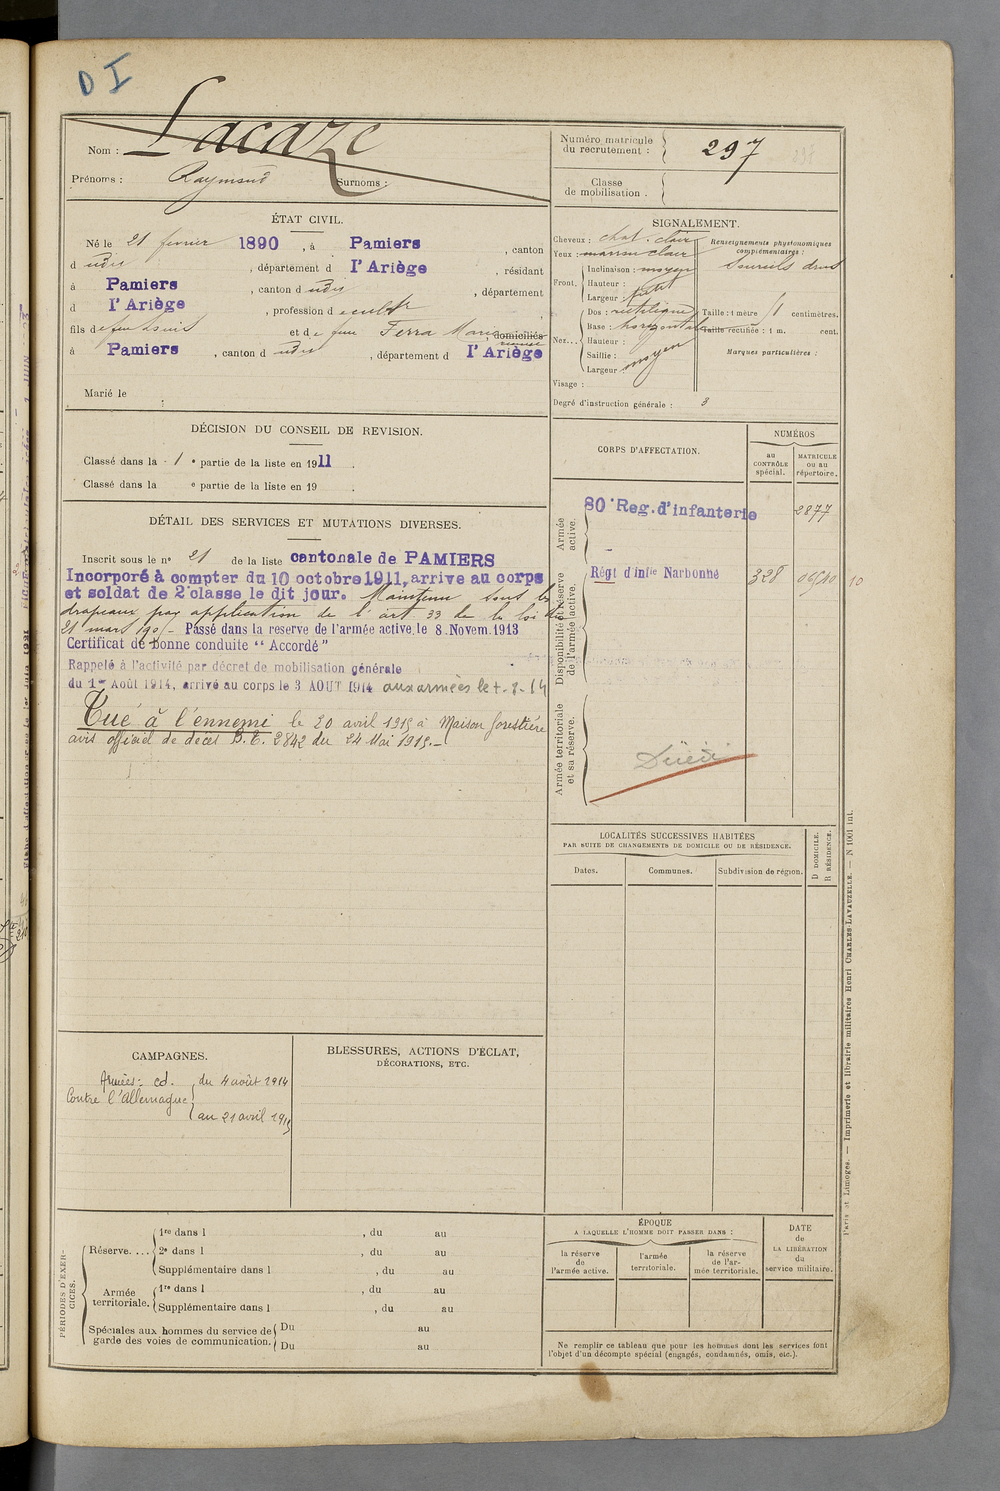 D I
Nom : Lacaze
Prénoms : Raymond Surnoms :
Numéro matricule du recrutement : 297
Classe de mobilisation .
ÉTAT CIVIL.
Né le 21 février 1890 , à Pamiers , canton
d udit , département d l'Ariège , résidant
à Pamiers , canton d udit , département
d l'Ariège , profession d
fils de feu Louis et de feue Ferra Marie domiciliés
à Pamiers , canton d udit , département d l'Ariège
Marié le
SIGNALEMENT.
Cheveux : chat. clair
Yeux : marron clair
Front. Inclinaison : moyen
Hauteur :
Largeur : petit
Nez... Dos : rectiligne
Base : horizontal
Hauteur :
Saillie :
Largeur : moyen
Visage :
Degré d'instruction générale : 3
Renseignements physionomiques complémentaires :
Sourcils droits
Taille : 1 mètre centimètres.
Taille rectifiée : 1 m. cent.
Marques particulières :
DÉCISION DU CONSEIL DE REVISION.
Classé dans la 1 e partie de la liste en 1911 .
Classé dans la e partie de la liste en 19 .
DÉTAIL DES SERVICES ET MUTATIONS DIVERSES.
Inscrit sous le n° 21 de la liste cantonale de PAMIERS
Incorporé à compter du 10 octobre 1911, arrive au corps
et soldat de 2e classe le dit jour. Maintenu sous les
drapeaux par application de l'art 33 de la loi du
21 mars 1905 - Passé dans la reserve de l'armée active, le 8. Novem. 1913
Certificat de bonne conduite "Accordé"
Rappelé à l'activité par décret de mobilisation générale
du 1er Août 1914, arrivé au corps le 3 AOUT 1914 aux armées le
Tué à l'ennemi le 20 avril 1915 à Maison forestière
avis officiel de décès B.E. 2842 du 24 Mai 1915.-
CORPS D'AFFECTATION.
NUMÉROS
au CONTRÔLE spécial.
MATRICULE ou au répertoire.
Armée active.
80e Reg. d'infanterie 2877
Disponibilité et réserve de l'armée active.
Régt d'infie Narbonne 328
Armée territoriale et sa réserve.
LOCALITÉS SUCCESSIVES HABITÉES
PAR SUITE DE CHANGEMENTS DE DOMICILE OU DE RÉSIDENCE.
Dates. Communes. Subdivision de région. D DOMICILE. R RÉSIDENCE.
CAMPAGNES.
Contre l'Allemagne
du 4 août 1914
au 21 avril 1915
BLESSURES, ACTIONS D'ECLAT,
DÉCORATIONS, ETC.
PÉRIODES D'EXERCICES.
Réserve. ... 1re dans l , du au
2e dans l , du au
Supplémentaire dans l , du au
Armée territoriale. 1re dans l , du au
Supplémentaire dans l , du au
Spéciales aux hommes du service de garde des voies de communication. Du au
Du au
ÉPOQUE
A LAQUELLE L'HOMME DOIT PASSER DANS :
la réserve de l'armée active.
l'armée territoriale.
la réserve de l'armée territoriale.
DATE de LA LIBÉRATION du service militaire.
Ne remplir ce tableau que pour les hommes dont les services font
l'objet d'un décompte spécial (engagés, condamnés, omis, etc.).
Paris et Limoges. — Imprimerie et librairie militaires Henri CHARLES-LAVAUZELLE. — N 1001 int.